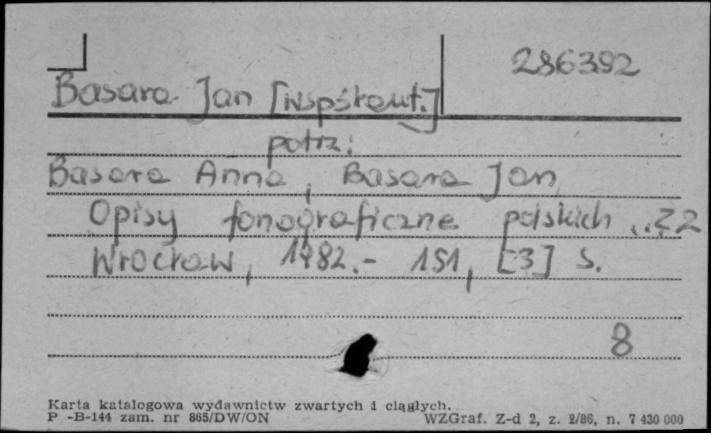 286392
Basara Jan [współaut.]
patrz:
Basara Anna, Basara Jan
Opisy fonograficzne polskich .. Z 2
Wrocław, 1982.- 151, [3] s.
8
Karta katalogowa wydawnictw zwartych i ciągłych.
P -B-144 zam. nr 865/DW/ON WZGraf. Z-d 2, z. 2/86, n. 7 430 000